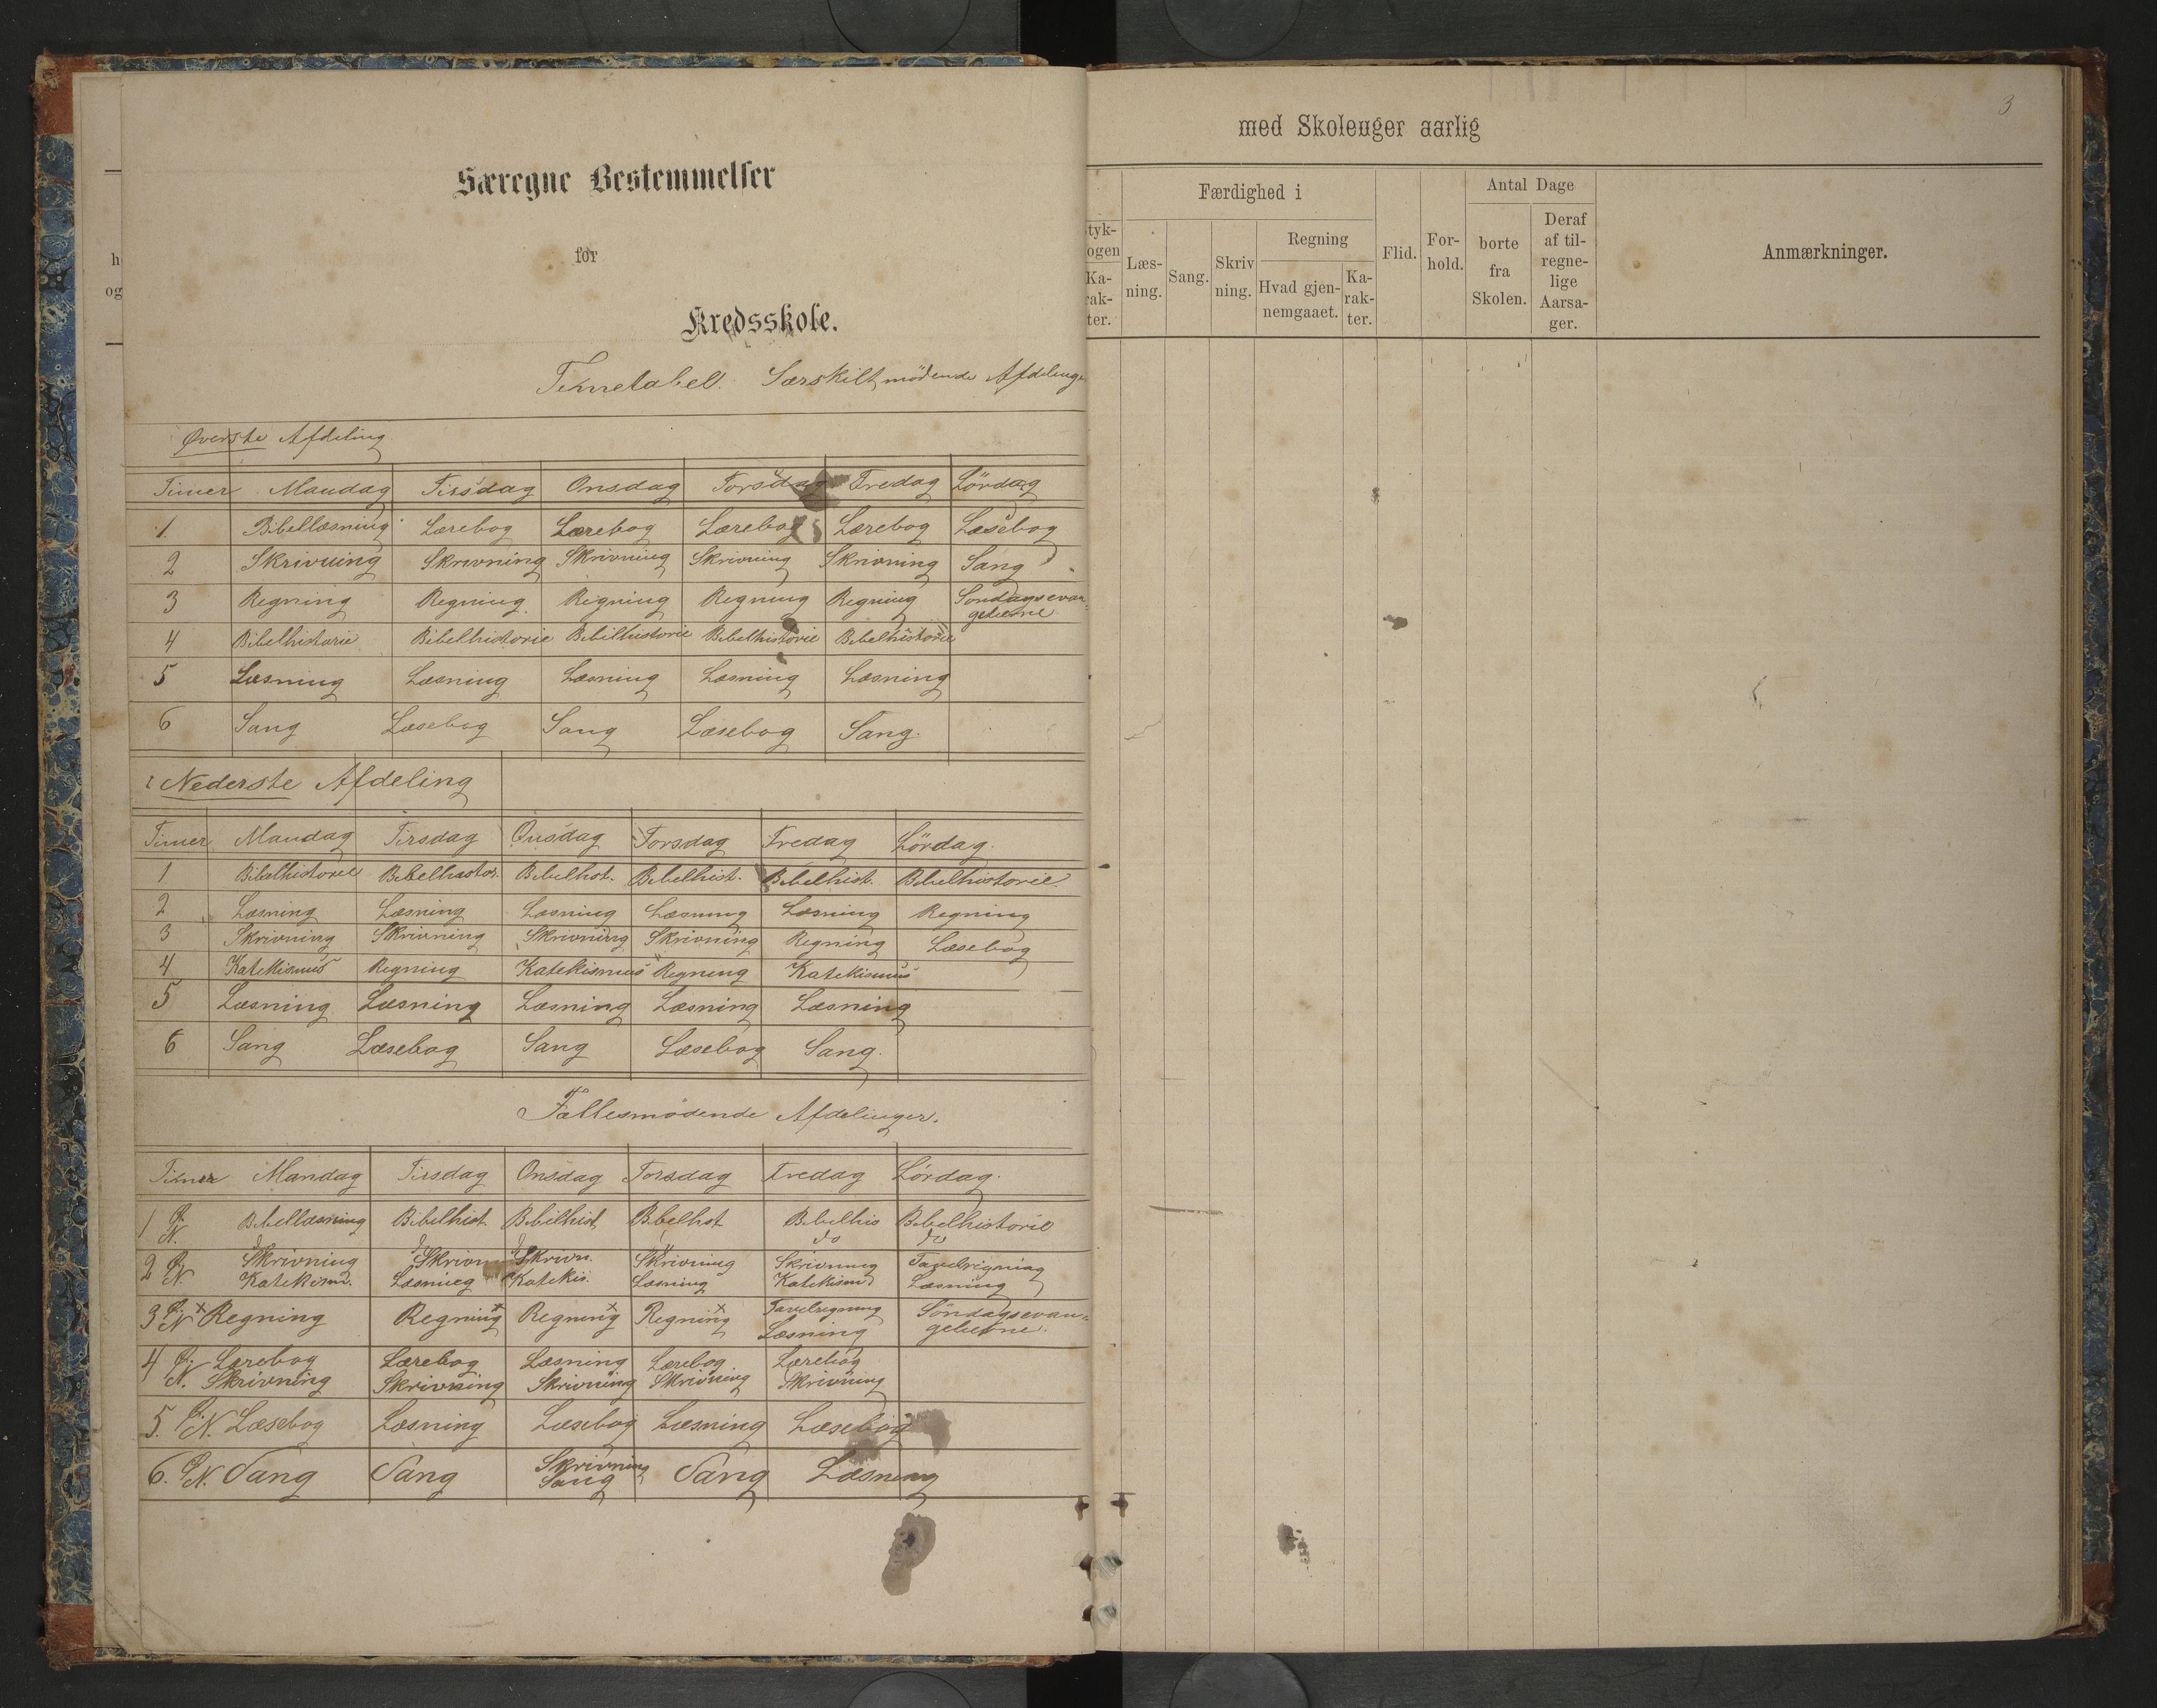 Særegne Bestemmelser
for
Kredsskole.
Timetabel. Særskilt mødende Afdelinge
Øverste Afdeling
Timer Mandag Tirsdag Onsdag Torsdag Fredag Lördag
1 Bibellæsning Lærebog Lærebog Lærebog Lærebog Læsebog
2 Skrivning Skrivning Skrivning Skrivning Skrivning Sang
3 Regning Regning Regning Regning Regning Søndagsevan-
gelierne
4 Bibelhistorie Bibelhistorie Bibelhistorie Bibelhistorie Bibelhistorie
5 Læsning Læsning Læsning Læsning Læsning
6 Sang Læsebog Sang Læsebog Sang.
Nederste Afdeling
Timer Mandag Tirsdag Onsdag Torsdag Fredag Lördag.
1 Bibelhistorie Bibelhistor. Bibelhst. Bibelhist. Bibelhist. Bibelhistorie.
2 Læsning Læsning Læsning Læsning Læsning Regning
3 Skrivning Skrivning Skrivning Skrivning Regning Læsebog
4 Katekismus Regning Katekismus Regning Katekismus
5 Læsning Læsning Læsning Læsning Læsning
6 Sang Læsebog Sang Læsebog Sang.
Fællesmødende Afdelinger.
Timer Mandag Tirsdag Onsdag Torsdag Fredag Lördag.
1 Ø. Bibellæsning Bibelhist. Bibelhist. Bibelhst Bibelhis Bibelhistorie
N. do do
2 Ø Skrivning Skrivn Skrivn. Skrivning Skrivning Tavelregning
N Katekism. Læsning Katekis. Læsning Katekism Læsning
3 Ø. N × Regning Regning × Regning × Regning × Tavelregning Söndagsevan-
Læsning gelierne.
4 Ø. Lærebog Lærebog Læsning Lærebog Lærebog
N. Skrivning Skrivning Skrivning Skrivning Skrivning
5. Ø. N. Læsebog Læsning Læsebog Læsning Læsebog
6. Ø. N. Sang Sang Skrivning Sang Læsning
Sang
h
og
3
med Skoleuger aarlig
tyk-
ogen
Ka-
rak-
ter.
Færdighed i
Læs-
ning.
Sang.
Skriv
ning.
Regning
Hvad gjen-
nemgaaet.
Ka-
rak-
ter.
Flid.
For-
hold.
Antal Dage
borte
fra
Skolen.
Deraf
af til-
regne-
lige
Aarsa-
ger.
Anmærkninger.